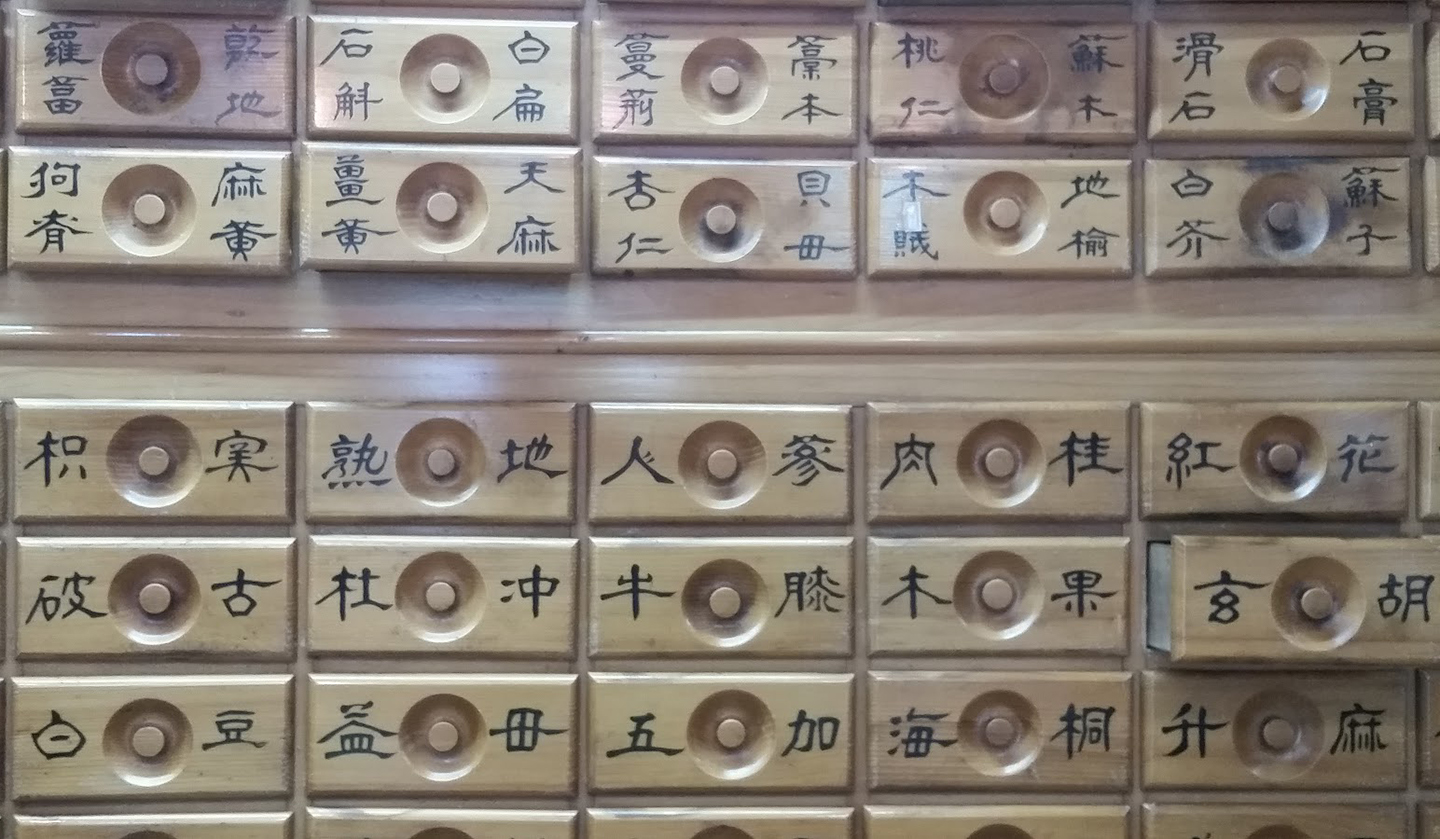 蘿葍 乾地
石斛 白扁
蔓荊 藁本
桃仁 蘇木
滑石 石膏
狗脊 麻黄
薑黄 天麻
杏仁 貝母
木賊 地榆
白芥 蘇子
枳実
熟地
人蔘
肉桂
紅花
破古
杜冲
牛膝
木果
玄胡
白豆
益母
五加
海桐
升麻